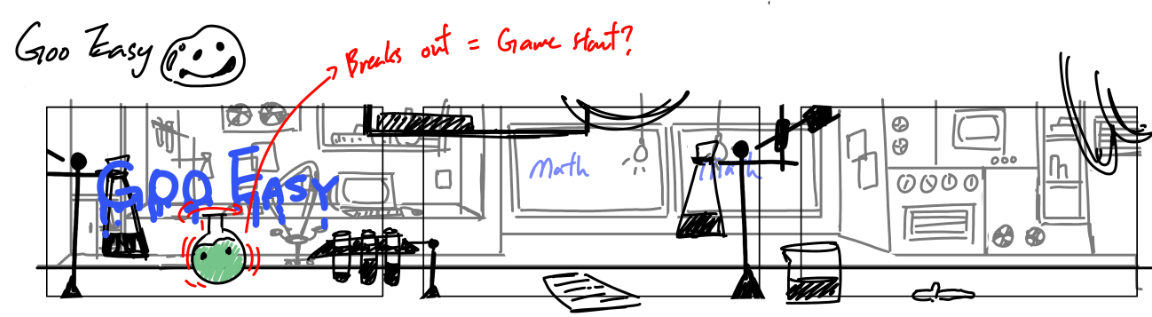 Goo Easy
Breaks out = Game start?
Goo Easy
Math
Math